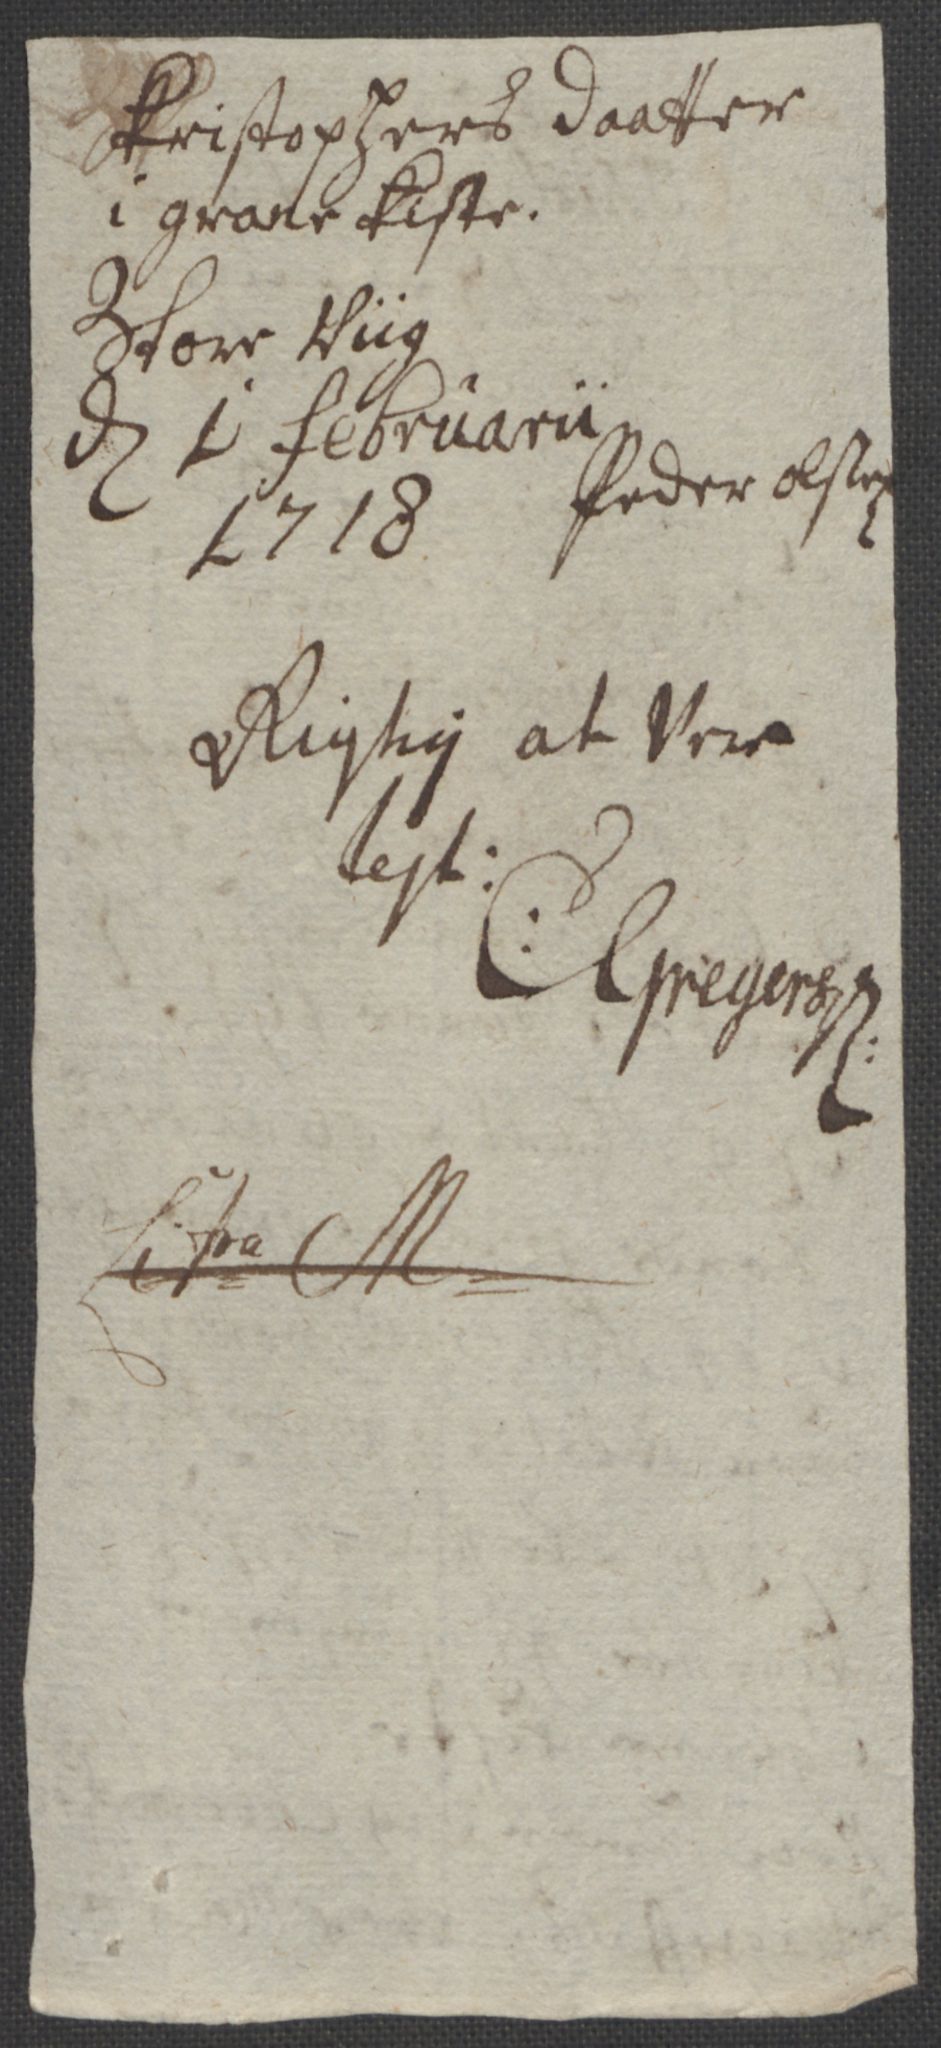 Kristophers daatter
i grane kiste.
Store Viig
d 1 februarii
1718 Peder olsen
Rigtig at Vere
test:
C: Gregersen:
Litra M